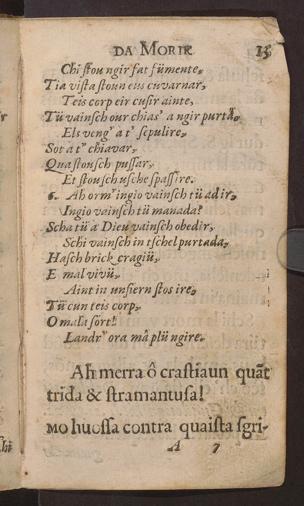 DA MORIR. 15
Chi stou ngir fat fümente,
Tia vista stoun eus cuvarnar,
Teis corp eir cusir ainte,
Tü vainsch our chias' a ngir purtâ,
Els veng' a t' sepulire,
Sot a t' chiavar,
Qua stousch pussar,
Et stousch usche spassire.
6. Ah orm' ingio vainsch tü ad ir,
Ingio vainsch tü manada?
Scha tü a Dieu vainsch obedir,
Schi vainsch in tschel purtada,
Hasch brick cragiü,
E mal vivü,
Aint in unfiern stos ire,
Tü cun teis corp,
O mala sört!
Landr' ora mâ plü ngire.
Ah merra ô crastiaun quãt
trida & stramantusa!
MO huossa contra quaista sgri-
A 7